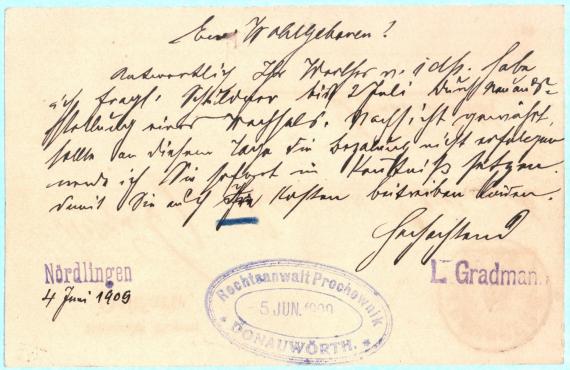 Euer Wohlgeboren!
Antwortlich Ihr Werthes v. 1 ds. habe
ich fragl. Schuldner bis 2 Juli durch Neuaus-
stellung eines Wechsels, Nachsicht gewährt,
sollte an diesem Tage die Bezahlung nicht erfolgen
werde ich Sie sofort in Kenntniß setzen
damit Sie auf Ihre Kosten beitreiben können.
Hochachtend
Nördlingen
4 Juni 1909
L. Gradman
Rechtsanwalt Prochownik
5 JUN. 1909
* DONAUWÖRTH. *